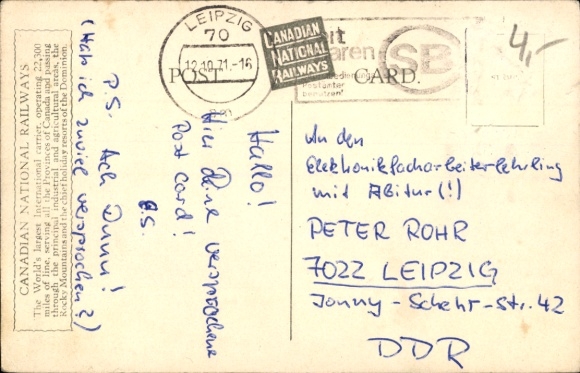 CANADIAN NATIONAL RAILWAYS
The World's largest International carrier, operating 22,300
miles of line, serving all the Provinces of Canada and passing
through the principal industrial and agricultural areas, the
Rocky Mountains and the chief holiday resorts of the Dominion.
LEIPZIG
70
12.10.71.-16
CANADIAN
NATIONAL
RAILWAYS
SB
Postämter
benutzen!
POST CARD.
4,-
Hallo!
Hier Deine versprochene
Post Card!
G.S.
P.S. Ach Dunni!
(Hab ich zuviel versprochen?)
An den
Elektronikfacharbeiterlehrling
mit Abitur(!)
PETER ROHR
7022 LEIPZIG
Jonny-Schehr-Str. 42
DDR